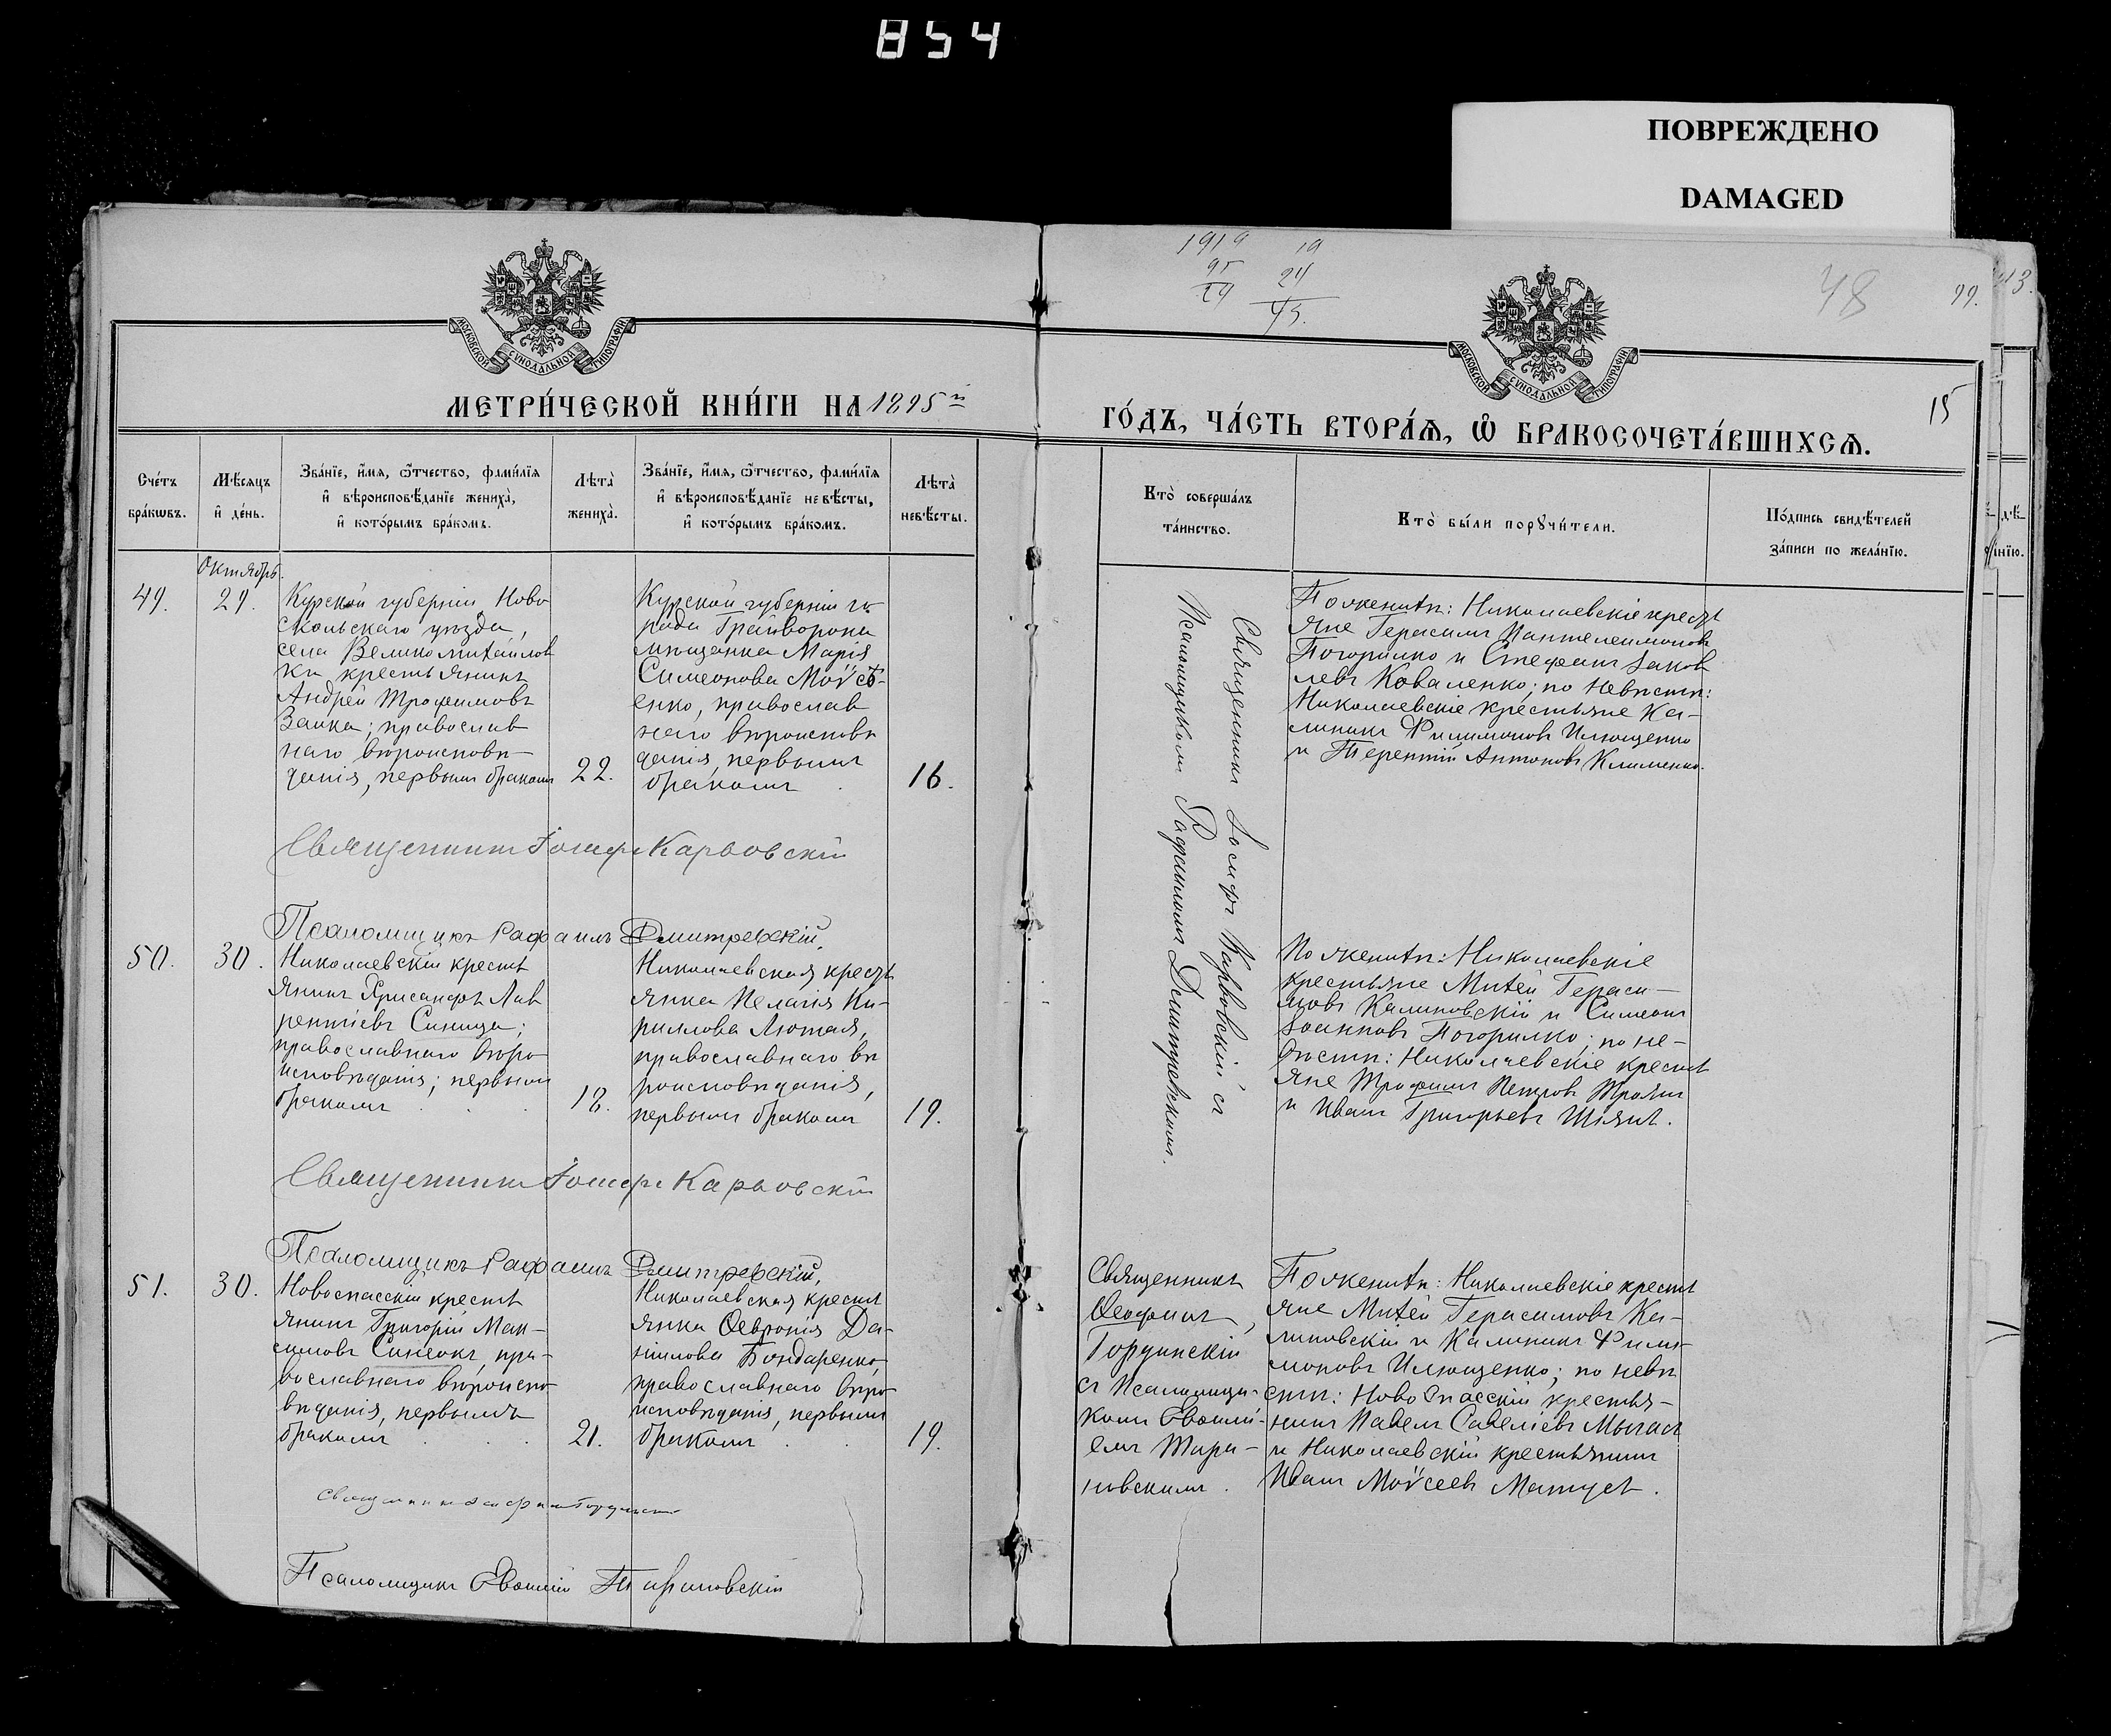 854
ПОВРЕЖДЕНО
DAMAGED
1919 19
95 24
24 43.
48
99.
43.
МОСКОВСКОЙ СѴНОДАЛЬНОЙ ТИПОГРАФІИ
МОСКОВСКОЙ СѴНОДАЛЬНОЙ ТИПОГРАФІИ
МЕТРИ́ЧЕСКОЙ КНИ́ГИ НА 1895й
ГО́ДЪ, ЧА́СТЬ ВТОРА́Ѧ, Ѽ БРАКОСОЧЕТА́ВШИХСѦ.
15
Сче́тъ
бра́кѡвъ.
Мѣ́сяцъ
и҆ де́нь.
Зва́нїе, и҆́мя, ѻ҆́тчество, фами́лїя
и҆ вѣроисповѣ́данїе жениха̀,
и҆ кото́рымъ бра́комъ.
Лѣта̀
жениха̀.
Зва́нїе, и҆́мя, ѻ҆́тчество, фами́лїя
и҆ вѣроисповѣ́данїе невѣ́сты,
и҆ кото́рымъ бра́комъ.
Лѣта̀
невѣ́сты.
Кто̀ соверша́лъ
та́инство.
Кто̀ бы́ли порꙋчи́тели.
По́дпись свидѣ́телей
за́писи по жела́нїю.
Октябрь.
49.
29.
Курской губерніи Ново
скольскаго уѣзда,
села Великомихайлов
ки крестьянинъ
Андрей Трофимовъ
Заика; православ
наго вѣроисповѣ-
данія, первымъ бракомъ
22.
Курской губерніи го
рода Грайворона
мѣщанка Марія
Симеонова Моѵсѣ-
енко, православ
наго вѣроисповѣ
данія, первымъ
бракомъ
16.
Священникъ Іосифъ Карвовскій съ
Псаломщикомъ Рафаиломъ Дмитревскимъ.
По женихѣ: Николаевскіе кресть
яне Герасимъ Пантелеимоновъ
Погорилко и Стефанъ Іаков
левъ Коваленко; по невѣстѣ:
Николаевскіе крестьяне Ка-
линикъ Филимоновъ Илющенко
и Терентій Антоновъ Клименко.
Священникъ Іосифъ Карвовскій
Псаломщикъ Рафаилъ Дмитревскій,
50.
30.
Николаевскій кресть
янинъ Хрисанфъ Лав
рентіевъ Синица;
православнаго вѣро
исповѣданія; первымъ
бракомъ
18.
Николаевская кресть
янка Пелагія Ки-
риллова Лютая,
православнаго вѣ
роисповѣданія,
первымъ бракомъ
19.
По женихѣ: Николаевскіе
крестьяне Михей Гераси-
мовъ Калиновскій и Симеонъ
Іоанновъ Погорилко; по не-
вѣстѣ: Николаевскіе кресть
яне Трофимъ Петровъ Троянъ
и Иванъ Григорьевъ Шіянъ.
Священникъ Іосифъ Карвовскій
Псаломщикъ Рафаилъ Дмитревскій,
51.
30.
Новоспасскій кресть
янинъ Григорій Мак-
симовъ Синеокъ, пра-
вославнаго вѣроиспо
вѣданія, первымъ
бракомъ
21.
Николаевская кресть
янка Февронія Да-
ниилова Бондаренко,
православнаго вѣро
исповѣданія, первымъ
бракомъ
19.
Священникъ
Ѳеофилъ
Гординскій
съ Псаломщи-
комъ
новскимъ.
По женихѣ: Николаевскіе кресть
яне Михей Герасимовъ Ка-
линовскій и Калиникъ Фили-
моновъ Илющенко; по невѣ
стѣ: Новоспасскій крестья-
нинъ Павелъ Савеліевъ
и Николаевскій крестьянинъ
Иванъ Моѵсеевъ
Священникъ
Псаломщикъ